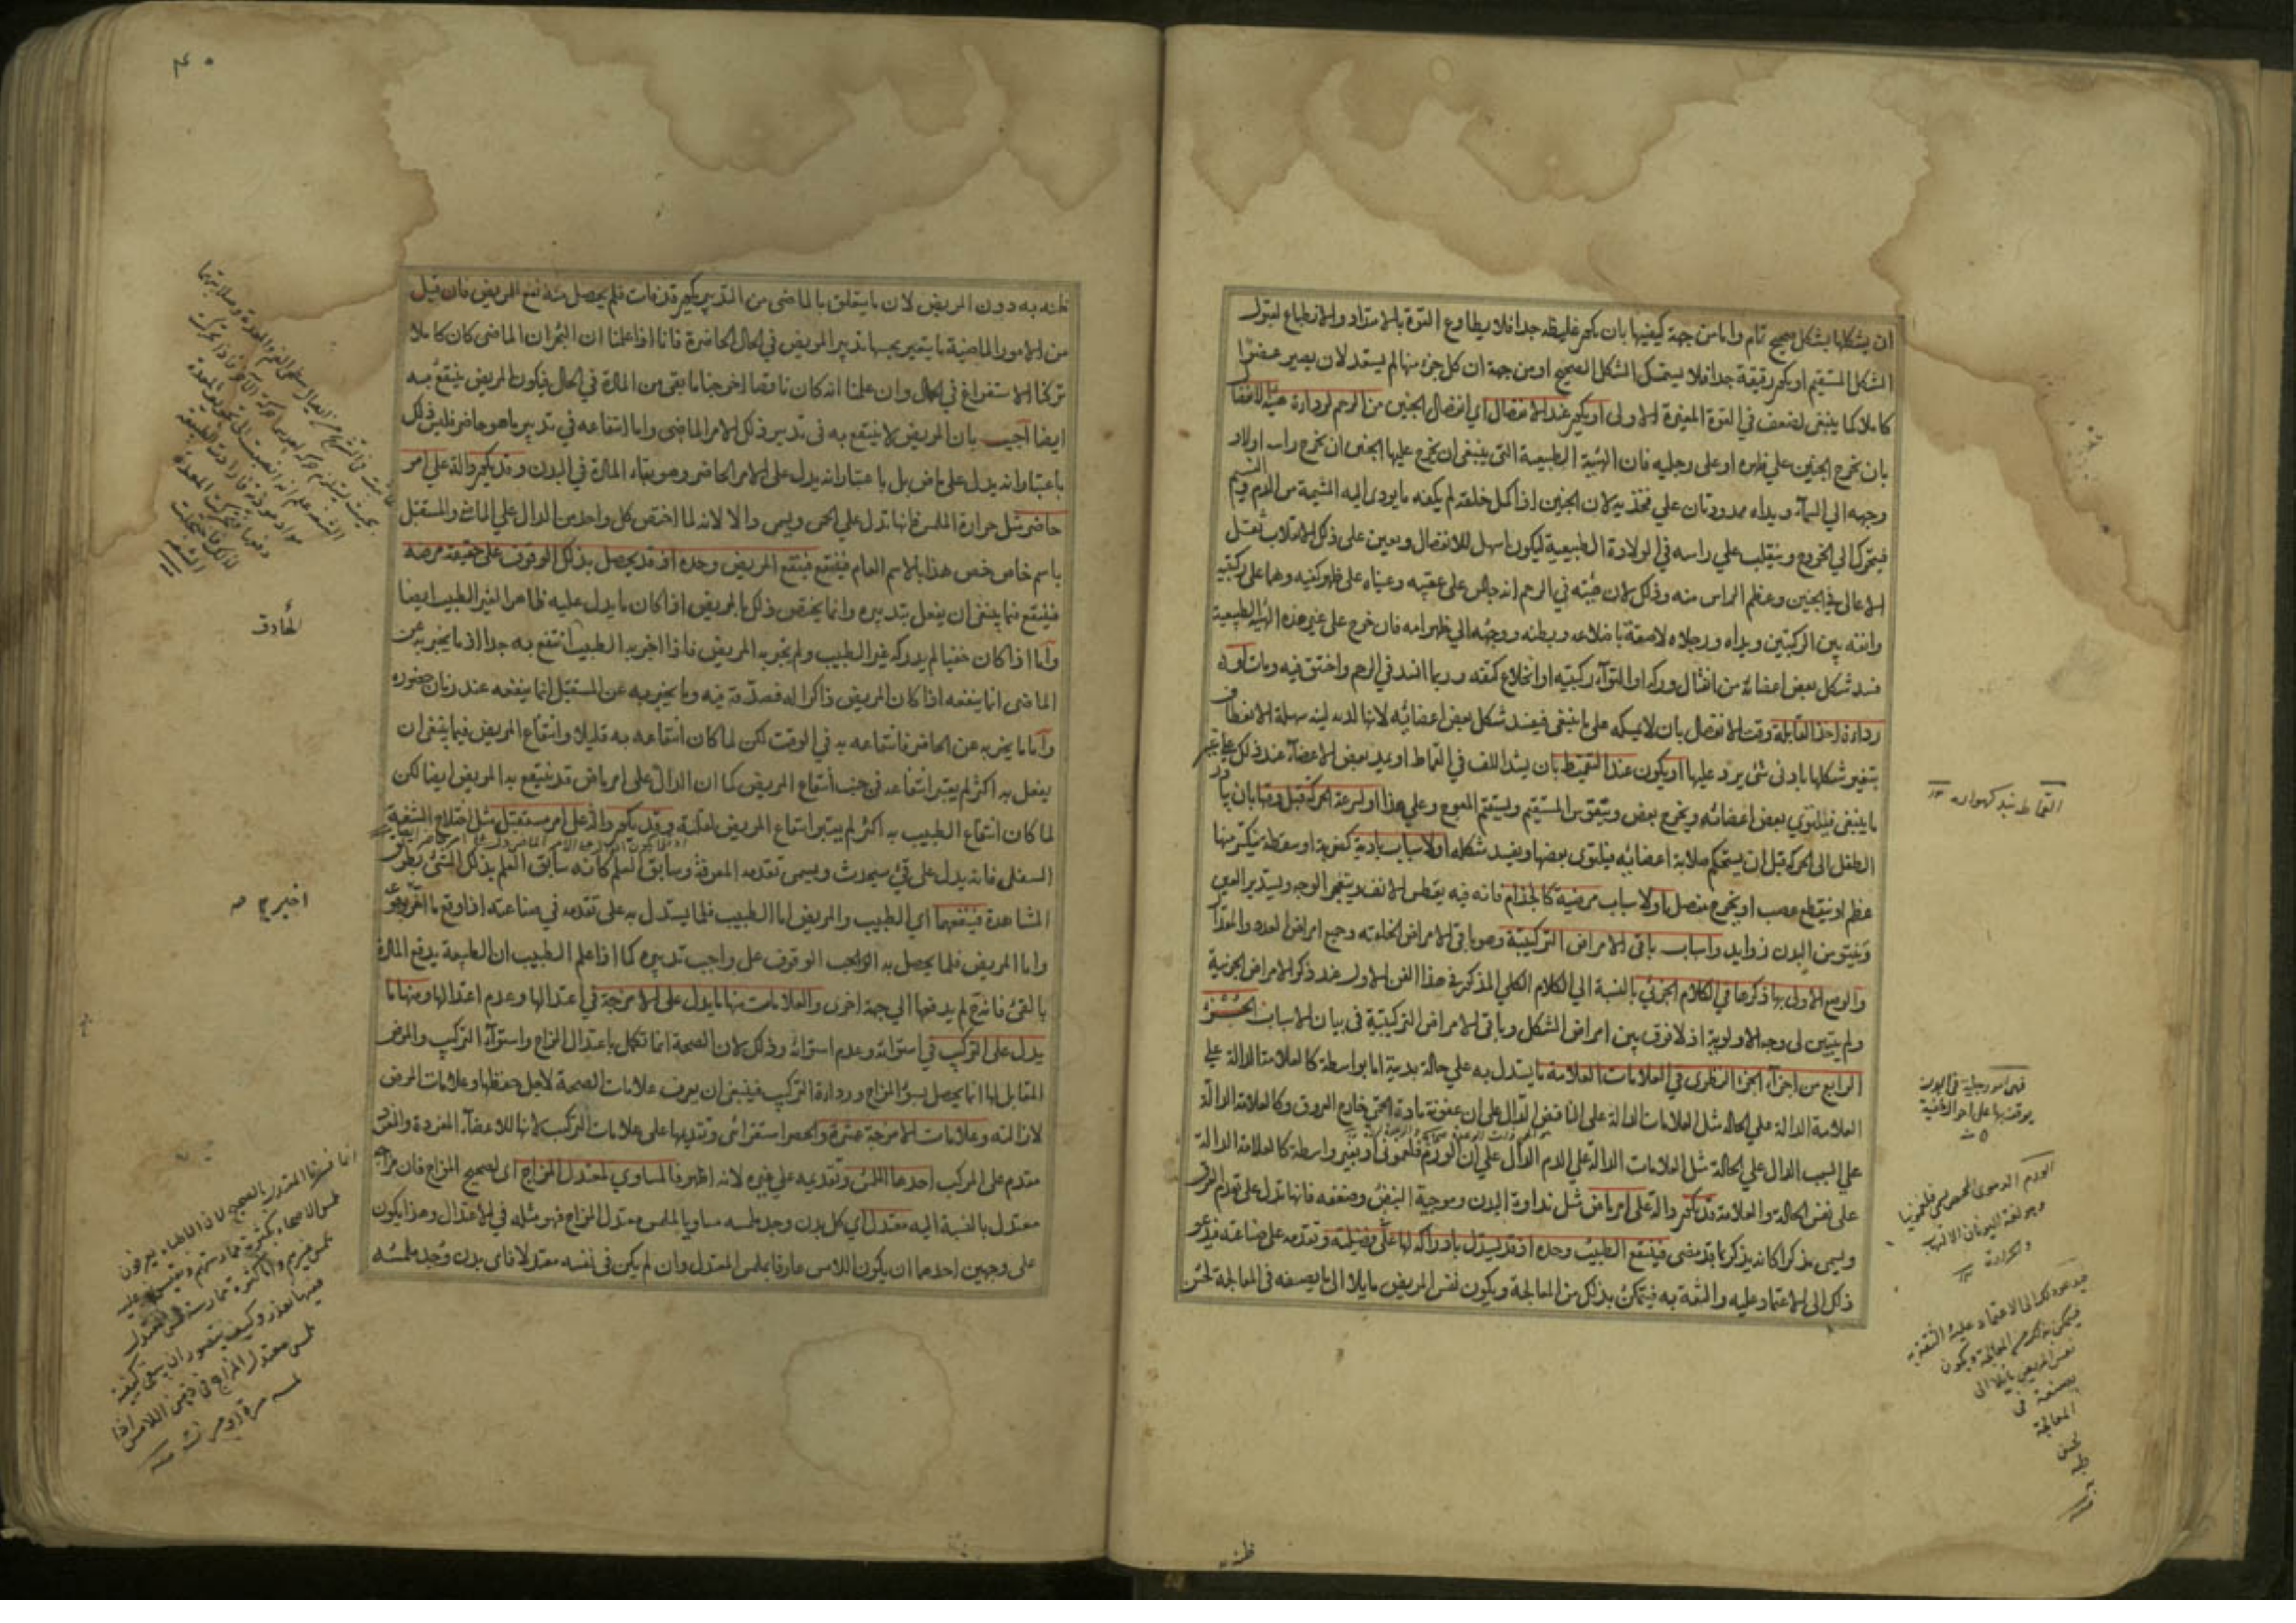 ان يشكلها بشكل صحيح تام واما من جهة كيفيتها بان يكون غليظة جدا فلا يطاوع القوة بالامتداد والانطباع لقبول
الشكل المستقيم او يكون رقيقة جدا فلا يستمسك الشكل الصحيح او من جهة ان كل جزء منها لم يستعد لان يصير عضوا
كاملا كما ينبغي لضعف في القوة المغيرة الاولى او يكون عند الانفصال اي انفصال الجنين من الرحم لرداءة هيئة الانفصال
بان يخرج الجنين علي ظهره او على رجليه فان الهيئة الطبيعية التي ينبغي ان يخرج عليها الجنين ان يخرج راسه اولا و
وجهه الي السماء ويداه ممدودتان علي فخذيه لان الجنين اذا كمل خلقته لم يكفه ما يودى اليه المشيمة من الدم والنسيم
فيتحرك الي الخروج وينقلب علي راسه في الولادة الطبيعية ليكون اسهل للانفصال ويعين على ذلك الانقلاب ثقل
الاعالي في الجنين وعظم الراس منه وذلك لان هيئته في الرحم انه جالس على عقبيه وعيناه على ظهر كفيه وهما على ركبتيه
وانفه بين الركبتين ويداه ورجلاه لاصقة باضلاعه وبطنه ووجهه الي ظهر امه فان خرج على غير هذه الهيئة الطبيعية
فسد شكل بعض اعضائه من انفتال وركه او التواء ركبتيه او انخلاع كتفه وربما انسد فم الرحم واختنق فيه ومات او
رداءة اخذ القابلة وقت الانفصال بان لا يمسكه على ما ينبغي فيفسد شكل بعض اعضائه لانها لدنه لينه سهلة الانعطاف
يتغير شكلها بادنى شئ يرد عليها او يكون عند التقميط بان يشد اللف في القماط او يمد بعض الاعضاء عند ذلك على غير
ما ينبغي فيلتوي بعض اعضائه ويخرج بعض ويتقوس المستقيم ويستقيم المعوج وعلي هذا او لسرعة الحركة قبل وقتها بان يبادر
الطفل الى الحركة قبل ان يستحكم صلابة اعضائه فيلتوى بعضها ويفسد شكله او لاسباب بادية كضربة او سقطة ينكسر منها
عظم او ينقطع عصب او يخرج مفصل او لاسباب مرضية كالجذام فانه فيه يفطس الانف ويتعجر الوجه ويستدير العين
وينبتو من البدن زوايد واسباب باقى الامراض التركيبية وهو باقى الامراض الخلقية وجميع امراض العدد والمقدار
والوضع الاولى بها ذكرها في الكلام الجزئي بالنسبة الي الكلام الكلي المذكور في هذا الفن الاول عند ذكر الامراض الجزئية
ولم يتبين لى وجه الاولوية اذ لا فرق بين امراض الشكل وباقى الامراض التركيبية في بيان الاسباب الجزء
الرابع من اجزاء الجزء النظرى في العلامات العلامة ما يستدل به علي حالة بدنية اما بواسطة كالعلامة الدالة علي
العلامة الدالة علي الحالة مثل العلامات الدالة على النافض الدال على ان عفونة مادة الحمى خارج العروق وكالعلامة الدالة
علي السبب الدال علي الحالة مثل العلامات الدالة علي الدم الدال علي ان الورم فلغموني او بغير واسطة كالعلامة الدالة
على نفس الحالة والعلامة قد يكون دالة على امر ماض مثل نداوة البدن وموجية النبض وضعفه فانها تدل على تقدم العرق
ويسمى مذكرا كانه يذكر ما قد مضى فينتفع الطبيب وحده اذ قد يستدل بادراكه لها على فضيلته وتقدمه على صناعته فيدعو
ذلك الى الاعتماد عليه والثقة به فيتمكن بذلك من المعالجة ويكون نفس المريض مايلا الى ما يصفه في المعالجة لحسن
القماط بند كهواره ١٢
فهى امور جلية في البدن
يوقف بها على احواله الخفية
الورم الدموى المحض يسمى فلغمونيا
وهو لغة اليونان الالتهاب
والحرارة ١٢
فيدعو ذلك الى الاعتماد عليه والثقة به
فيتمكن بذلك من المعالجة ويكون
نفس المريض مايلا الى
يصفه في
المعالجة
لحسن
ظنه
به
ظنه به
٤٠
ظنه به دون المريض لان ما يتعلق بالماضى من التدبير يكون قد فات فلم يحصل منه نفع المريض فان قيل
من الامور الماضية ما يتغير بحسبها تدبير المريض في الحال الحاضرة فانا اذا علمنا ان البحران الماضى كان كاملا
تركنا الاستفراغ في الحال وان علمنا انه كان ناقصا اخرجنا ما بقى من المادة في الحال فيكون المريض ينتفع به
ايضا اجيب بان المريض لا ينتفع به في تدبير ذلك الامر الماضى واما انتفاعه في تدبير ما هو حاضر فليس ذلك
باعتبار انه يدل على ماض بل باعتبار انه يدل على الامر الحاضر وهو بقاء المادة في البدن وقد يكون دالة على امر
حاضر مثل حرارة الملمس فانها تدل علي الحمى ويسمى دالا لانه لما اختص كل واحد من الدال علي الماضى والمستقبل
باسم خاص خص هذا بالاسم العام فينتفع فينتفع المريض وحده اذ قد يحصل بذلك الوقوف على حقيقة مرضه
فينتفع فيما ينبغي ان يفعل بتدبيره وانما يختص ذلك بالمريض اذا كان ما يدل عليه ظاهرا لغير الطبيب ايضا
واما اذا كان خفيا لم يدركه غير الطبيب ولم يخبر به المريض فاذا اخبر به الطبيب انتفع به جدا اذ ما يخبر به عن
الماضى انما ينفعه اذا كان المريض ذاكرا له فصدقه فيه وما يخبر به عن المستقبل انما ينفعه عند زمان حضوره
واما ما يخبر به عن الحاضر فانتفاعه به في الوقت لكن لما كان انتفاعه به قليلا وانتفاع المريض فيما ينبغي ان
يفعل به اكثر لم يعتبر انتفاعه في جنب انتفاع المريض كما ان الدال على امر ماض قد ينتفع به المريض ايضا لكن
لما كان انتفاع الطبيب به اكثر لم يعتبر انتفاع المريض لقلته وقد يكون دالة على امر مستقبل مثل اختلاج الشفة
السفلى فانه يدل على قئ سيحدث ويسمى تقدمه المعرفة وسابق العلم كانه سابق العلم بذلك الشئ بطريق
المشاهدة فينتفع بها اي الطبيب والمريض اما الطبيب فلما يستدل به على تقدمه في صناعته اذا وقع ما اخبر بوقوعه
واما المريض فلما يحصل به الواجب الوقوف على واجب تدبيره كما اذا علم الطبيب ان الطبيعة يدفع المادة
بالقئ فانه ح لم يدفعها الي جهة اخرى والعلامات منها ما يدل على الامزجة في اعتدالها وعدم اعتدالها ومنها ما
يدل على التركيب في استوائه وعدم استوائه وذلك لان الصحة انما تكمل باعتدال المزاج واستواء التركيب والمرض
المقابل لها انما يحصل بسوء المزاج ورداءة التركيب فينبغي ان يعرف علامات الصحة لاجل حفظها وعلامات المرض
لازالته وعلامات الامزجة عشرة والحصر استقرائى وتقديمها على علامات التركيب لانها للاعضاء المفردة والمفرد
متقدم على المركب احدها الملمس وتقديمه علي غيره لانه اظهر فالمساوي لمعتدل المزاج اى لصحيح المزاج فان مزاجه
معتدل بالنسبة اليه معتدل اي كل بدن وجد ملمسه مساويا لملمس معتدل المزاج فهو مثله في الاعتدال وهذا يكون
على وجهين احدهما ان يكون اللامس عارفا بملمس المعتدل وان لم يكن في نفسه معتدلا فاى بدن وجد ملمسه
الحاذق
اخبر به